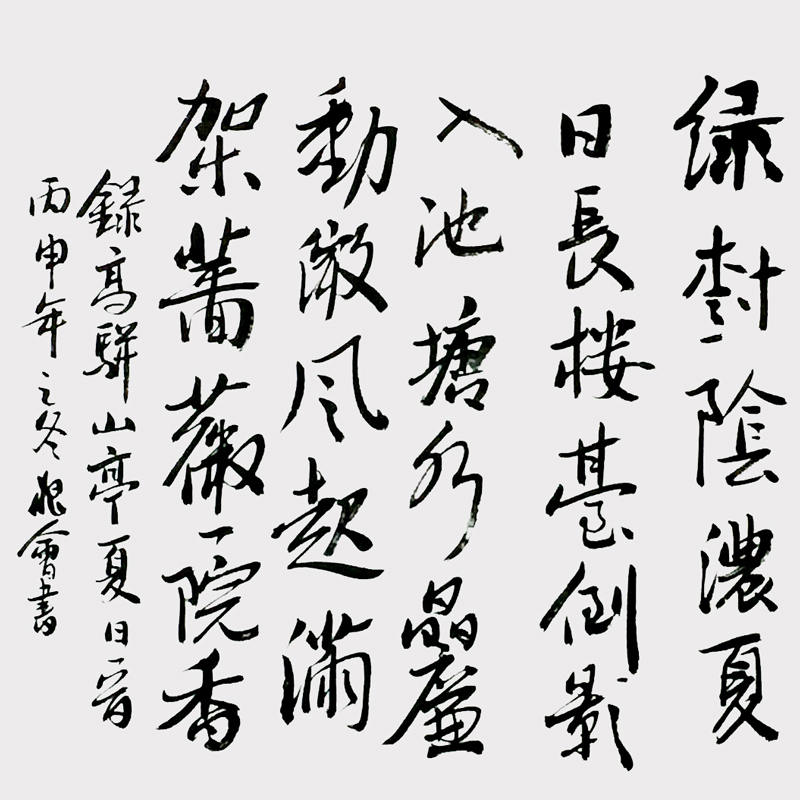 绿樹陰濃夏
日長楼臺倒影
入池塘水晶簾
動微风起滿
架薔薇一院香
録高駢山亭夏日一首
丙申年之冬會書